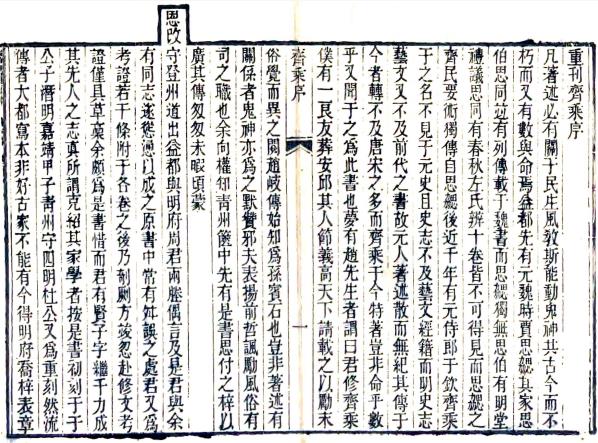 重刊齊乘序
凡著述必有關于民生風敎斯能動鬼神其古今而不
朽而又有數與命焉益都先有元魏時賈思勰其家思
伯思同竝有列傳載于魏書而思勰獨無思伯有明堂
禮議思同有春秋左氏辨十卷皆不可得見而思勰之
齊民要術獨傳自思勰後近千年有元侍郎于欽齊乘
于之名不見于元史且史志不及藝文經籍而明史志
藝文又不及前代之書故元人著述散而無紀其傳于
今者轉不及唐宋之多而齊乘于今特著豈非命乎數
乎又聞于之爲此書也夢有趙先生者謂曰君修齊乘
僕有一良友葬安邱其人節義高天下請載之以勵末
齊乘序
一
俗覺而異之閱趙岐傳始知爲孫賓石也豈非著述有
關係者鬼神亦爲之默贊邪夫表揚前哲諷勵風俗有
司之職也余向權知青州篋中先有是書思付之梓以
廣其傳匆匆未暇頃蒙
恩改守登州道出益都與明府周君兩塍偶言及是君與余
有同志遂慫慂以成之原書中常有舛誤之處君又爲
考證若干條附于各卷之後乃剞劂方竣忽赴修文考
證僅具草藁余頗爲是書惜而君有賢子字繼千力成
其先人之志真所謂克紹其家學者按是書初刻于于
公子潛明嘉靖甲子青州守四明杜公又爲重刻然流
傳者大都寫本非好古家不能有今得明府喬梓表章